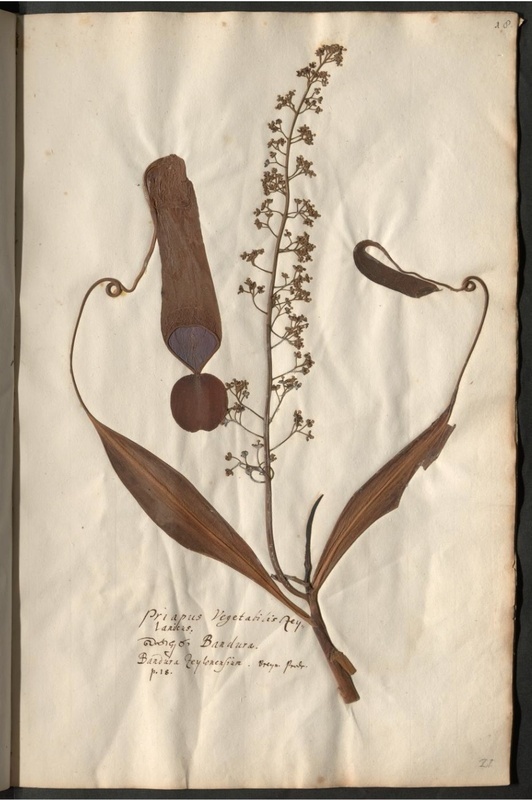 28.
Priapus Vegetabilis Zey-
lanicus.
Bandura.
Bandura Zeylonensium. Breyn. Prodr.
p. 18.
28